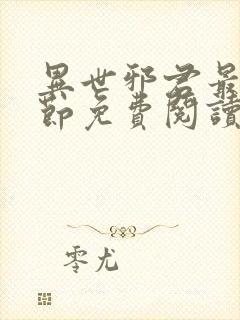 異世邪君最
節免費閱讀
零尤